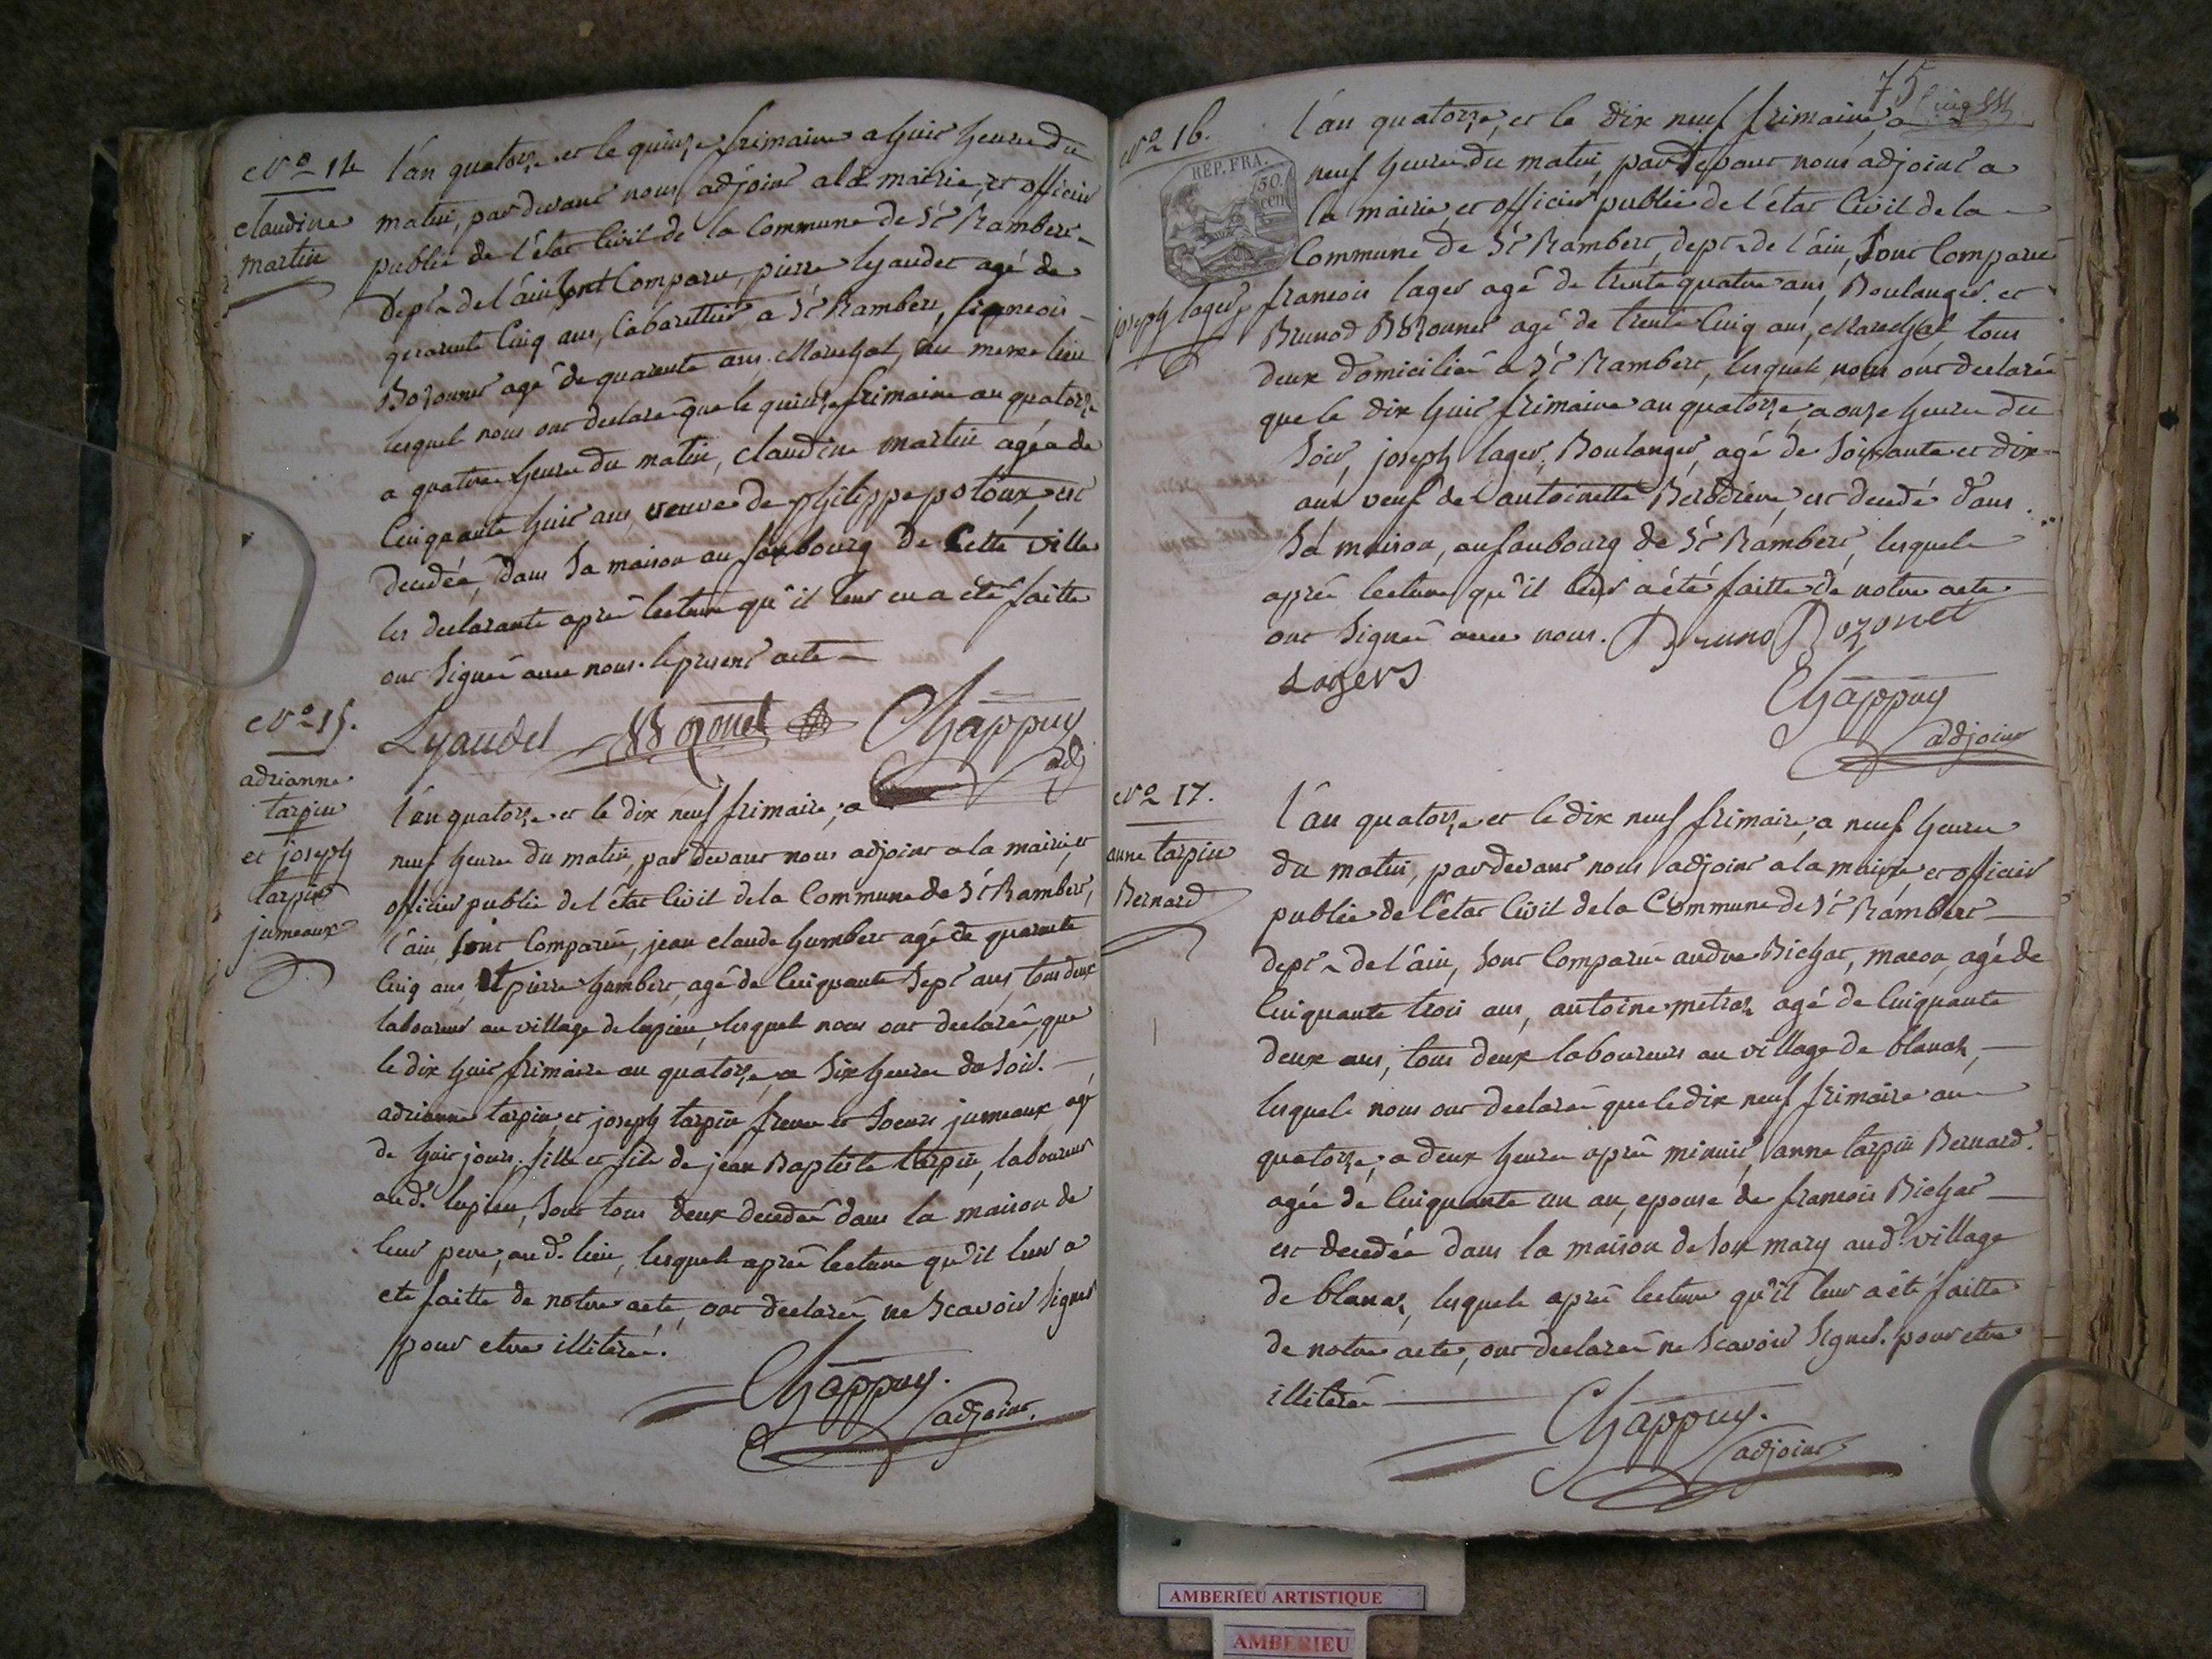 N.o 14
claudine
martin
l'an quatorze et le quinze frimaire a huit heure du
matin, par devant nous adjoint a la mairie, et officier
public de l'état Civil de la Commune de St Rambert
dépt de l'ain sont Comparu, pierre lyaudet agé de
quarente Cinq ans, Cabarettier a St Rambert, francois
Bozonnet agé de quarente ans Marechal, au meme lieu
lesquels nous ont declaré que le quinze frimaire an quatorze
a quatre heure du matin, claudine martin agée de
Cinquante huit ans, veuve de philippe potoux, est
decedée, dans Sa maison au faubourg de Cette ville
les declarants après lecture qu'il leur en a été faitte
ont Signée avec nous le present acte
Lyaudet Bozonet Chappuy
adj
N.o 15.
adrianne
tarpin
et joseph
tarpin
jumeaux
l'an quatorze et le dix neuf frimaire, a
neuf heure du matin, par devant nous adjoint a la mairie, et
officier public de l'état Civil de la Commune de St Rambert,
l'ain, Sont Comparue, jean claude humbert agé de quarante
Cinq ans, Et pierre humbert, agé de Cinquante Sept ans, tous deux
laboureur au village de lupieu, lesquels nous ont declarée, que
le dix huit frimaire an quatorze, a Six heure du Soir.
adrianne tarpin, et joseph tarpin frere et Soeurs jumeaux agé
de huit jours, fille et fils de jean Baptiste tarpin, laboureur
aud. lupieu, Sont tous deux decedée dans la maison de
leur pere, aud. lieu, lesquels après lecture qu'il leur a
eté faitte de notre acte, ont declarée ne Scavoir Signer
pour etre illiteré.
Chappuy.
adjoint.
75
N.o 16.
REP. FRA.
50.
cen
joseph lager
l'an quatorze, et le dix neuf frimaire, a
neuf heure du matin, par devant nous adjoint a
la mairie, et officier public de l'état Civil de la
Commune de St Rambert, dept de l'ain, Sont Comparue
francois lager agé de trente quatre ans, Boulanger. et
Brunod Bozonnet agé de trente Cinq ans, Marechal, tous
deux domiciliée a St Rambert, lesquels nous ont declarée
que le dix huit frimaire an quatorze, a onze heure du
Soir, joseph lager, Boulanger, agé de Soixante et dix
ans veuf de antoinette est decedé dans
Sa maison, au faubourg de St Rambert, lesquels
après lecture qu'il leur a été faitte de notre acte
ont Signée avec nous. Bruno Bozonet
Lagers
Chappuy
adjoint
N.o 17.
anne tarpin
Bernard
l'an quatorze et le dix neuf frimaire, a neuf heure
du matin, par devant nous adjoint a la mairie, et officier
public de l'état Civil de la Commune de St Rambert
dept de l'ain, Sont Comparue andre Bichat, macon, agé de
Cinquante trois ans, antoine metraz agé de Cinquante
deux ans, tous deux laboureurs au village de blanaz,
lesquels nous ont declarée que le dix neuf frimaire an
quatorze, a deux heure après minuit, anne tarpin Bernard.
agée de Cinquante un an, epouse de francois Bichat
est decedée dans la maison de Son mary aud. village
de blanaz, lesquels après lecture qu'il leur a été faitte
de notre acte, ont declarée ne Scavoir Signer. pour etre
illiterée
Chappuy.
adjoint
AMBERIEU ARTISTIQUE
AMBERIEU